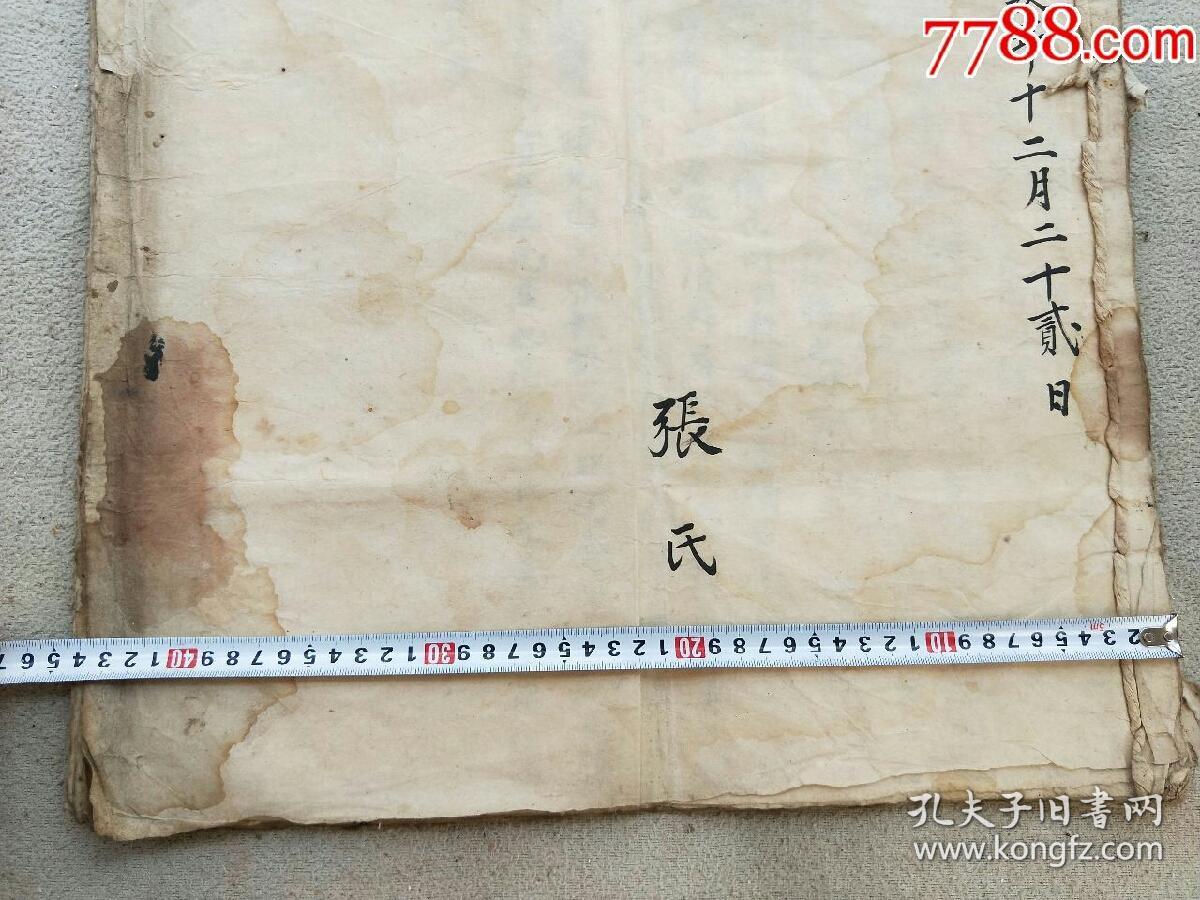 7788.com
年十二月二十貳日
張氏
孔夫子旧书网
www.kongfz.com
7 6 5 4 3 2 1 40 9 8 7 6 5 4 3 2 1 30 9 8 7 6 5 4 3 2 1 20 9 8 7 6 5 4 3 2 1 10 9 8 7 6 5 4 3 2